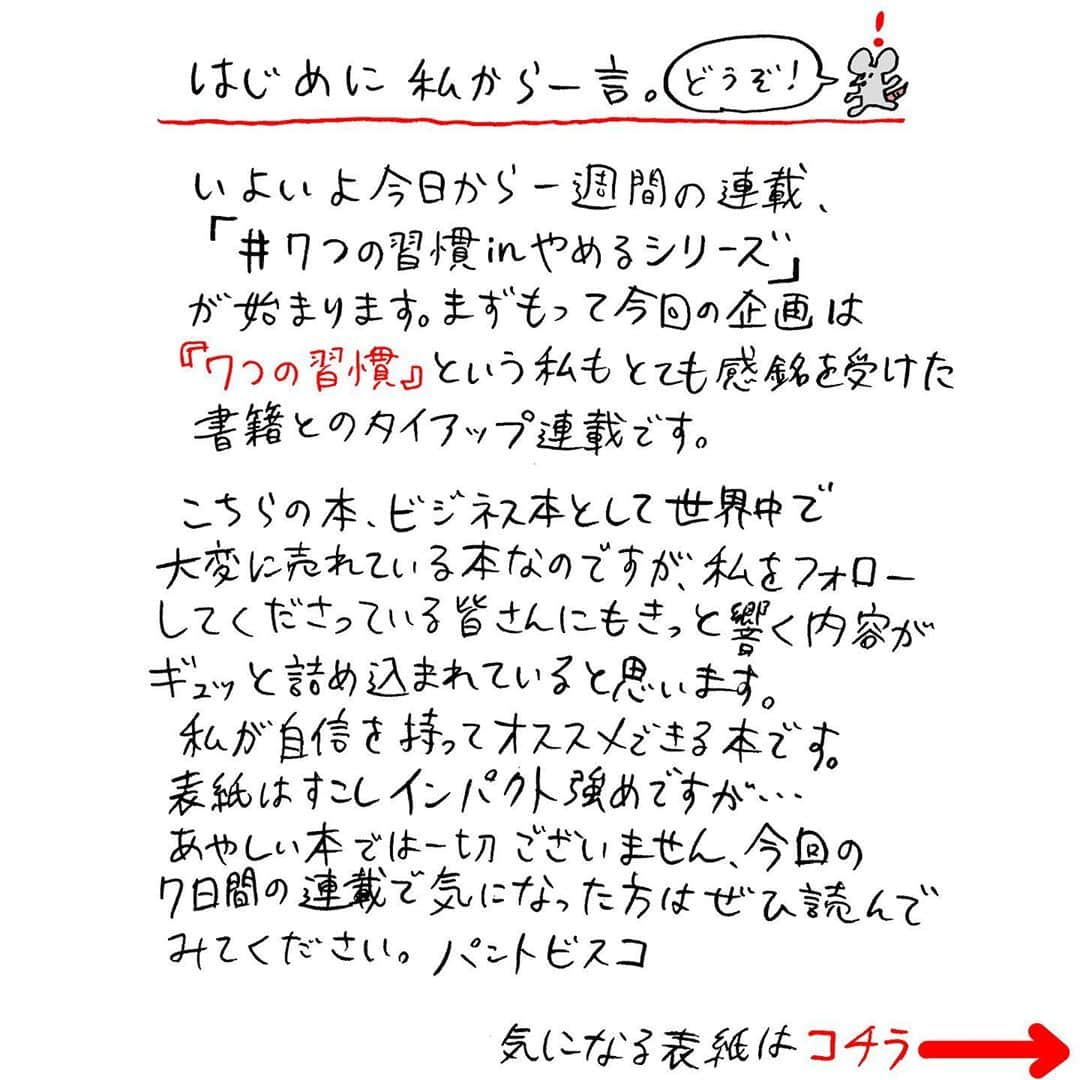 はじめに私から一言。
どうぞ！
！
いよいよ今日から一週間の連載、
「#7つの習慣inやめるシリーズ」
が始まります。まずもって今回の企画は
『7つの習慣』という私もとても感銘を受けた
書籍とのタイアップ連載です。
こちらの本、ビジネス本として世界中で
大変に売れている本なのですが、私をフォロー
してくださっている皆さんにもきっと響く内容が
ギュッと詰め込まれていると思います。
私が自信を持ってオススメできる本です。
表紙はすこしインパクト強めですが…
あやしい本では一切ございません、今回の
7日間の連載で気になった方はぜひ読んで
みてください。パントビスコ
気になる表紙はコチラ→